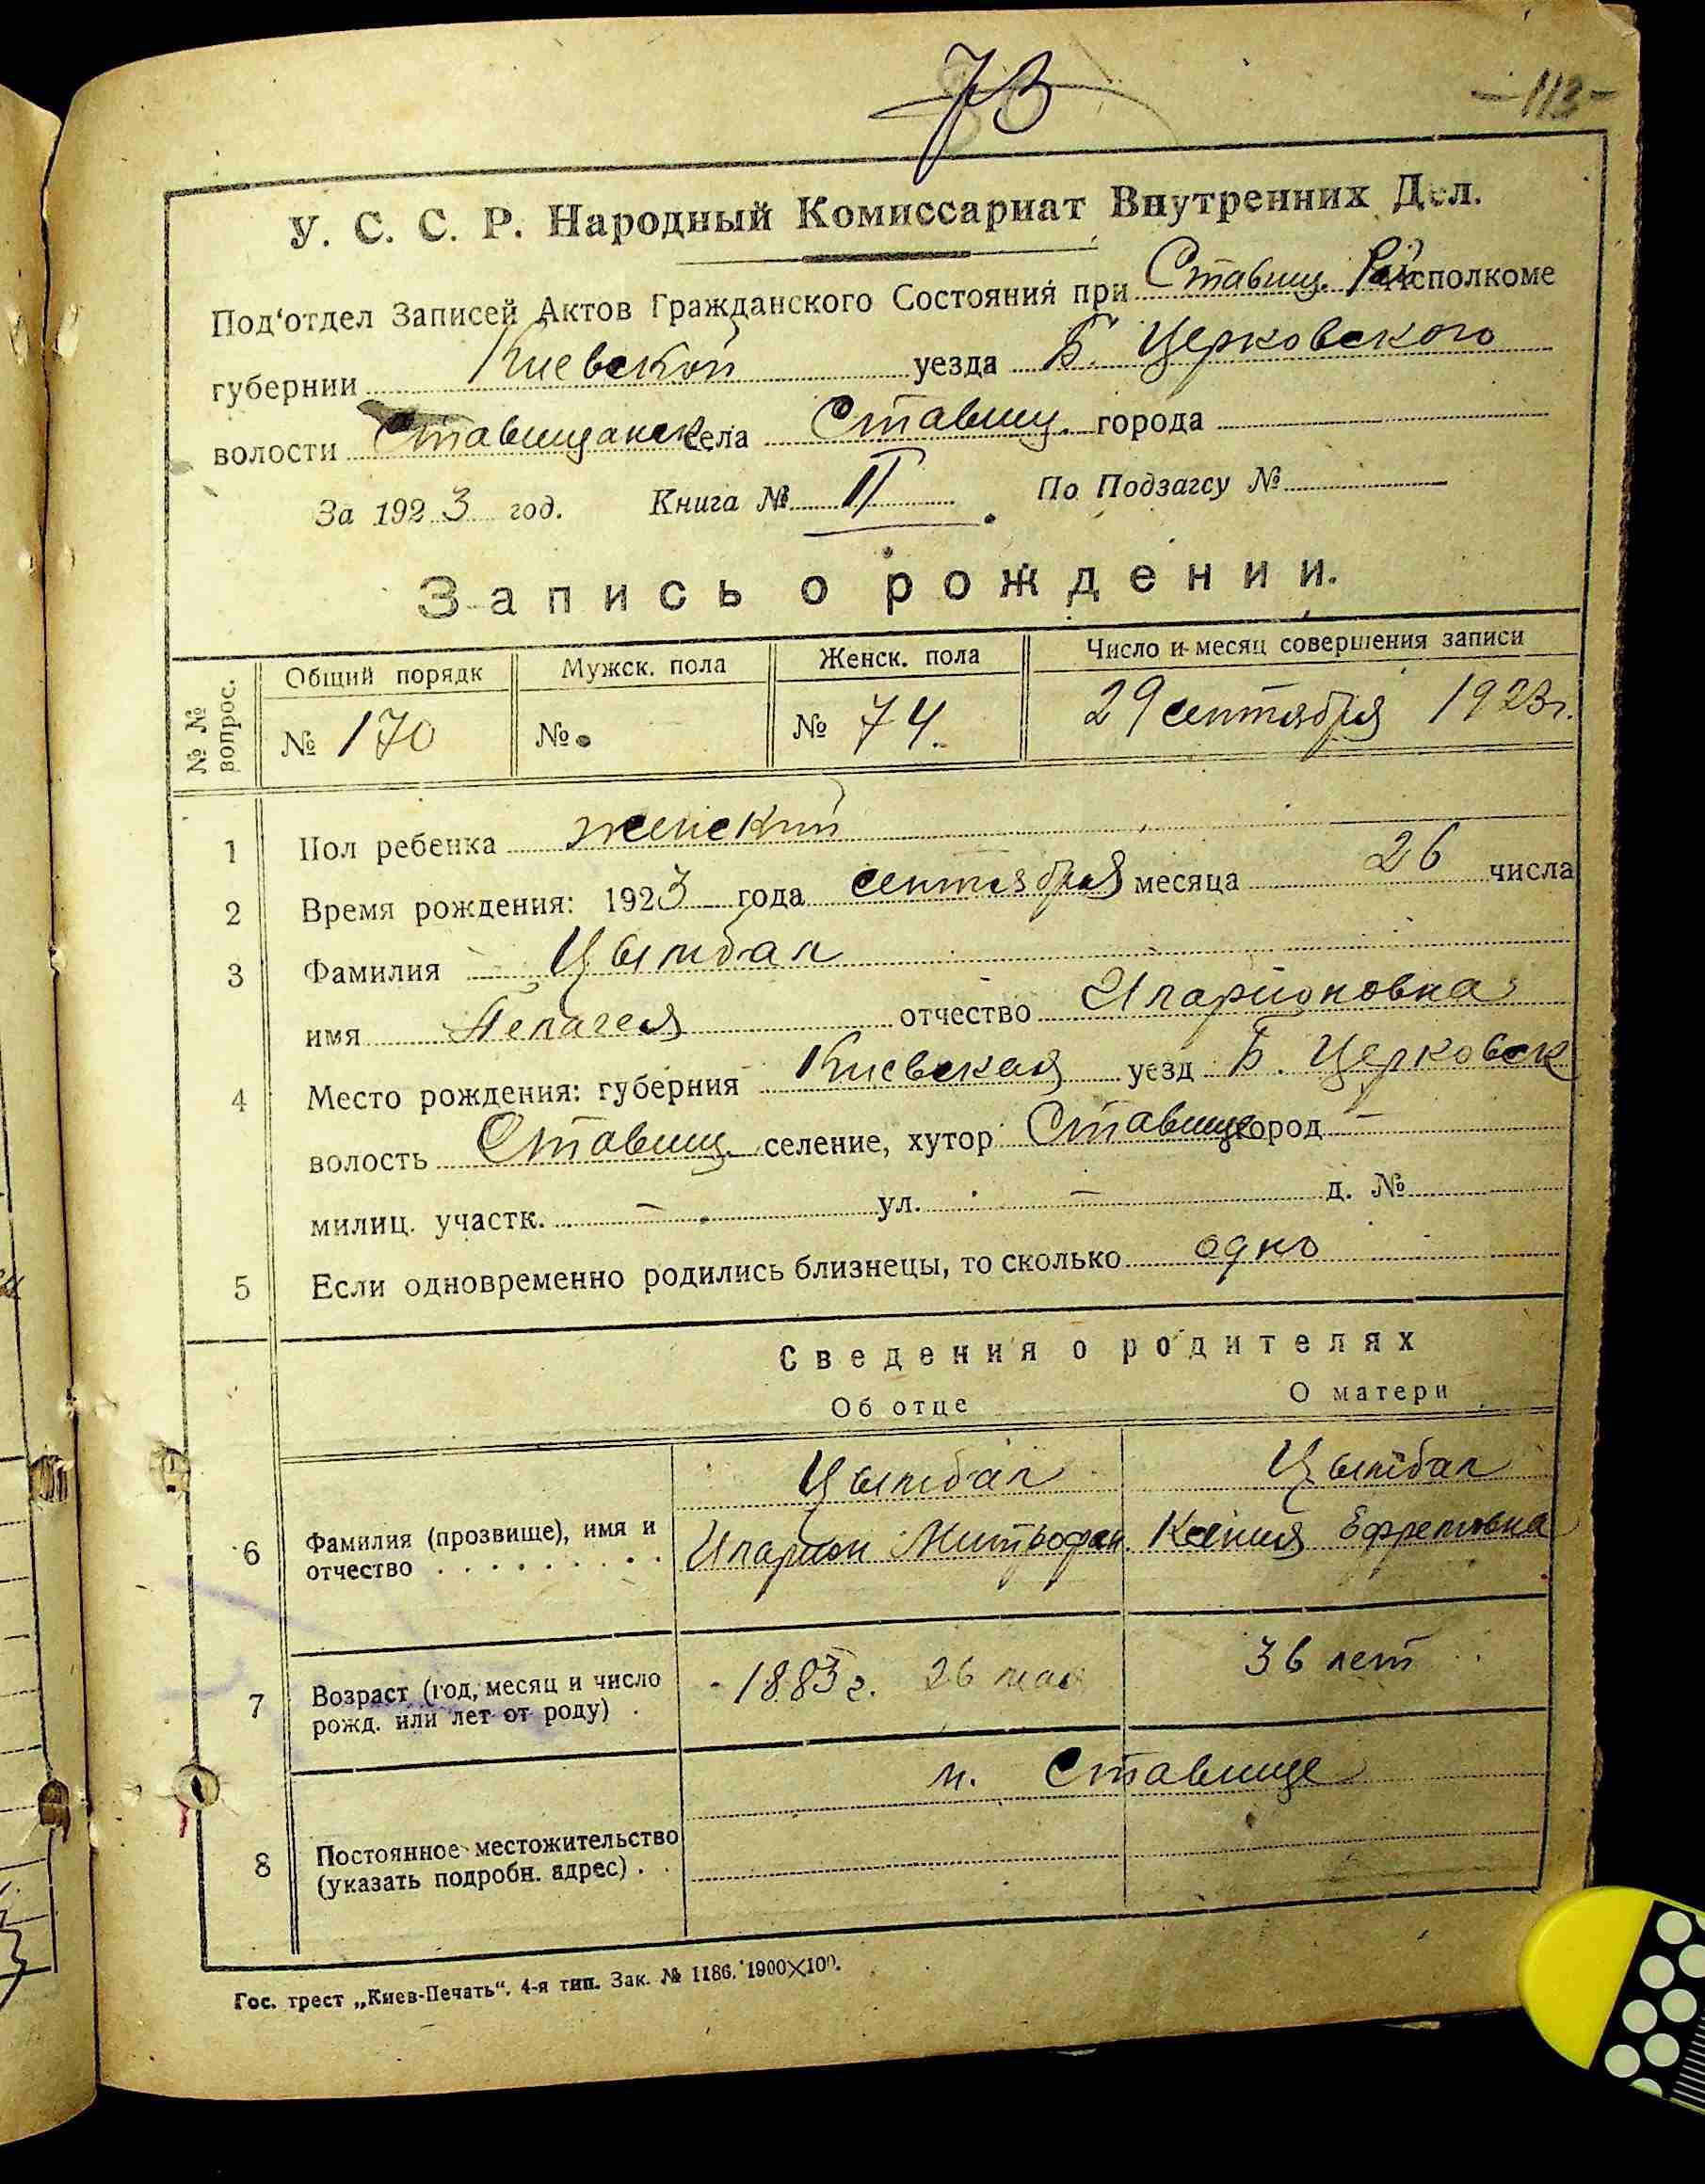 73
-113-
У. С. С. Р. Народный Комиссариат Внутренних Дел.
Под‘отдел Записей Актов Гражданского Состояния при Ставищ. Рай исполкоме
губернии Киевской уезда Б. Церковского
волости Ставищанск села Ставищ. города
За 1923 год. Книга № II По Подзагсу №
Запись о рождении.
№ № вопрос. Общий порядк Мужск. пола Женск. пола Число и месяц совершения записи
№ 170 № № 74. 29 сентября 1923 г.
1 Пол ребенка женский
2 Время рождения: 1923 года сентября месяца 26 числа
3 Фамилия Цымбал
имя Пелагея отчество Иларионовна
4 Место рождения: губерния Киевская уезд Б. Церковск
волость Ставищ. селение, хутор Ставище город —
милиц. участк. — ул. — д. №
5 Если одновременно родились близнецы, то сколько одно
Сведения о родителях
Об отце О матери
Цымбал Цымбал
6 Фамилия (прозвище), имя и отчество . . . . . . . . Иларион Митрофан. Ксения Ефремовна
7 Возраст (год, месяц и число рожд. или лет от роду) . 1883 г. 26 мая 36 лет
м. Ставище
8 Постоянное местожительство (указать подробн. адрес) . .
Гос. трест „Киев-Печать“. 4-я тип. Зак. № 1186. 1900×100.